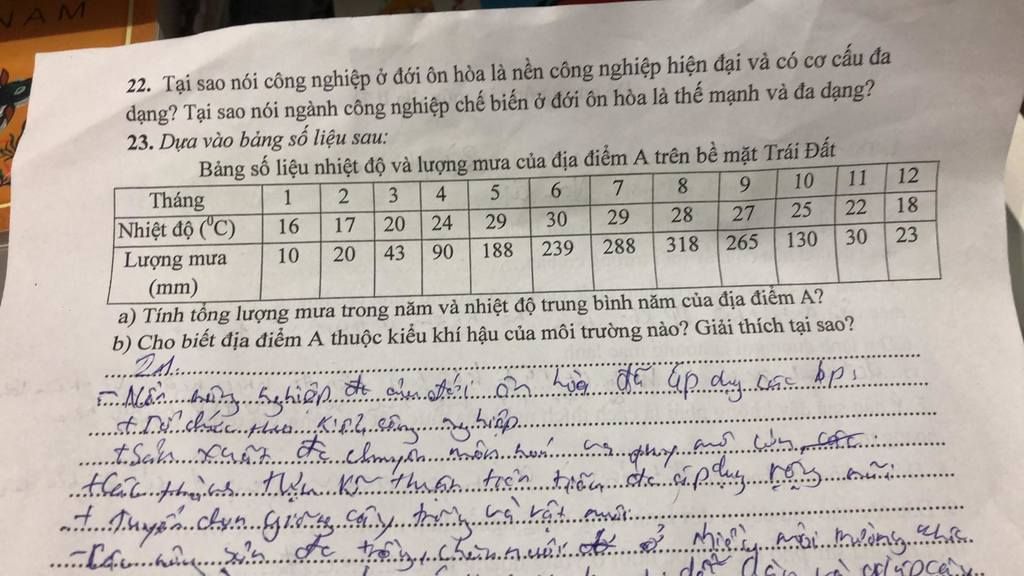 NAM
22. Tại sao nói công nghiệp ở đới ôn hòa là nền công nghiệp hiện đại và có cơ cấu đa
dạng? Tại sao nói ngành công nghiệp chế biến ở đới ôn hòa là thế mạnh và đa dạng?
23. Dựa vào bảng số liệu sau:
Bảng số liệu nhiệt độ và lượng mưa của địa điểm A trên bề mặt Trái Đất
Tháng 1 2 3 4 5 6 7 8 9 10 11 12
Nhiệt độ (⁰C) 16 17 20 24 29 30 29 28 27 25 22 18
Lượng mưa 10 20 43 90 188 239 288 318 265 130 30 23
(mm)
a) Tính tổng lượng mưa trong năm và nhiệt độ trung bình năm của địa điểm A?
b) Cho biết địa điểm A thuộc kiểu khí hậu của môi trường nào? Giải thích tại sao?
21.
- Nền nông nghiệp đới ôn hòa đã áp dụng các bp:
+ Tổ chức theo kiểu công nghiệp
+ Sản xuất đc chuyên môn hoá quy mô lớn
+ Các thành tựu kĩ thuật tiên tiến đc áp dụng rộng rãi
+ Tuyển chọn giống cây trồng và vật nuôi
- Các nông sản đc trồng, chăn nuôi ở nhiều môi trường khác